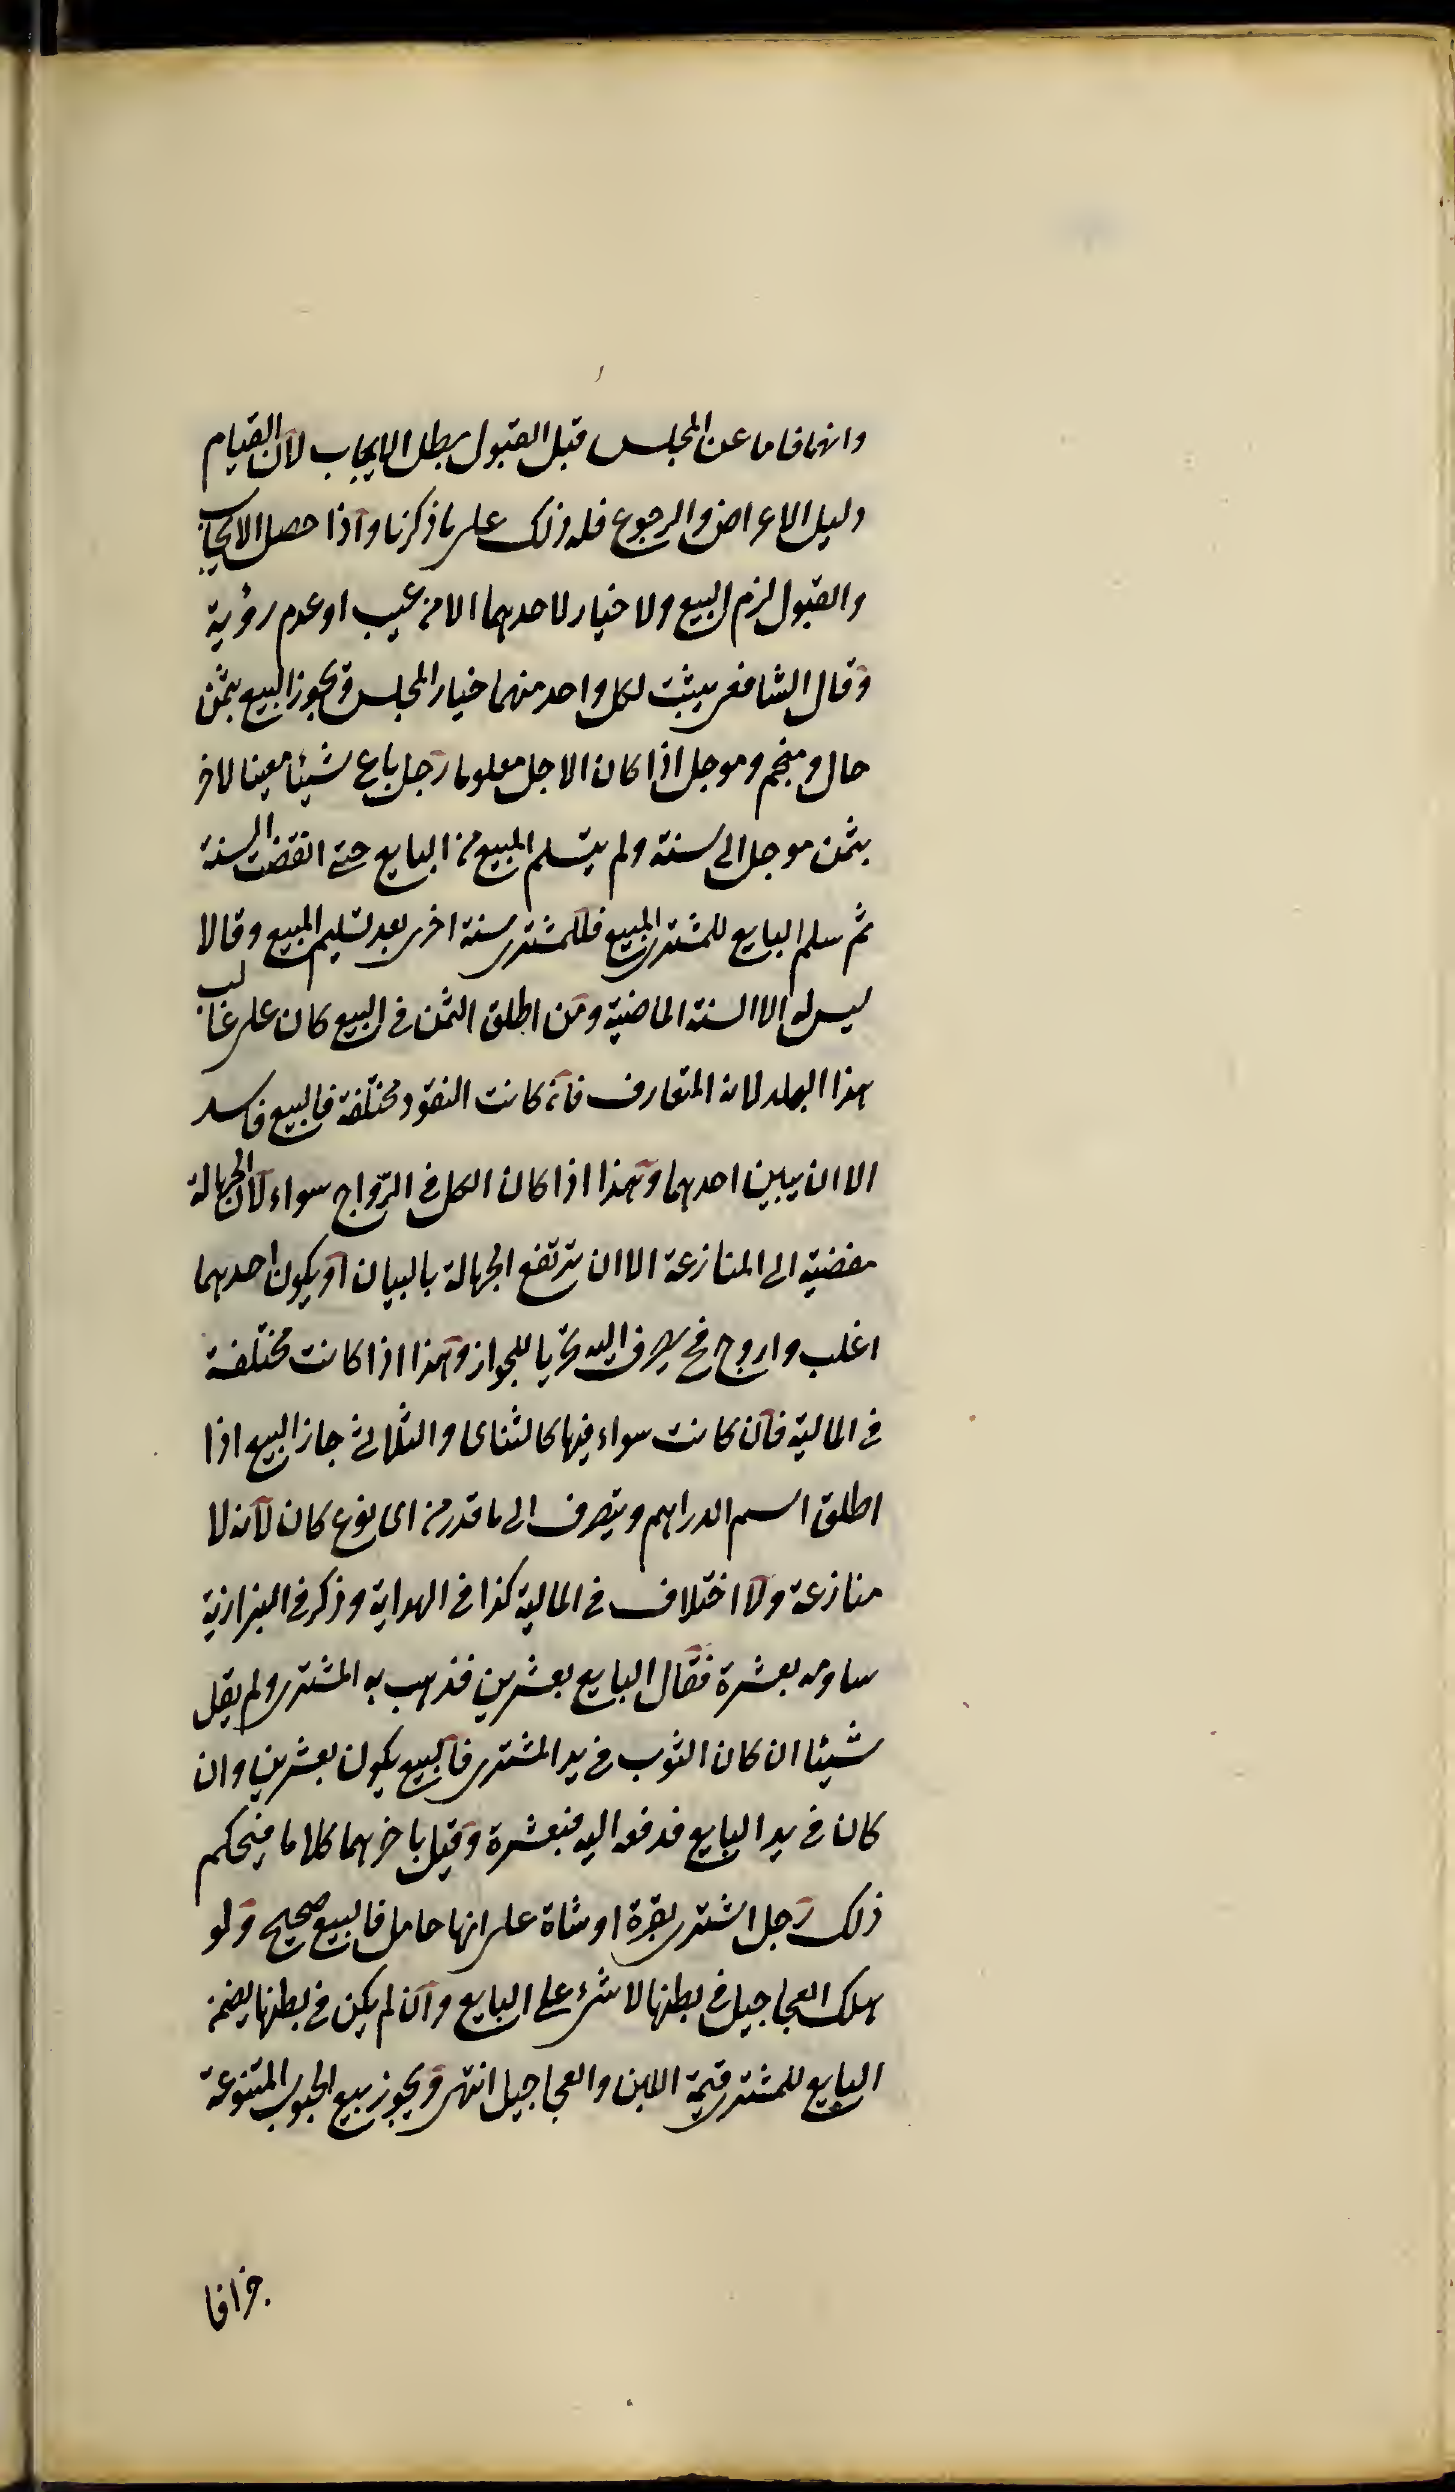 وانهما قاما عن المجلس قبل القبول بطل الايجاب لان القيام
دليل الاعراض والرجوع فله ذلك على ما ذكرنا واذا حصل الايجاب
والقبول لزم البيع ولا خيار لاحدهما الا من عيب او عدم رؤية
وقال الشافعى يثبت لكل واحد منهما خيار المجلس ويجوز البيع بثمن
حال ومنجم وموجل اذا كان الاجل معلوما رجل باع شيئا معينا لاخر
بثمن موجل الى سنة ولم يتسلم المبيع من البايع حتى انقضت السنة
ثم سلم البايع للمشترى المبيع فللمشترى سنة اخرى بعد تسليم المبيع وقالا
ليس له الا السنة الماضية ومن اطلق الثمن فى البيع كان على غالب
هذا البلد لانه المتعارف فان كانت النقود مختلفة فالبيع فاسد
الا ان يبين احدهما وهذا اذا كان الكل فى الرّواج سواء لان الجهالة
مفضية الى المنازعة الا ان ترتفع الجهالة بالبيان او يكون احدهما
اغلب واروج فح يصرف اليه تحريا للجواز وهذا اذا كانت مختلفة
فى المالية فان كانت سواء فيها كالثناى والثلاثى جاز البيع اذا
اطلق اسم الدراهم ويتصرف الى ما قدر من اى نوع كان لانه لا
منازعة ولا اختلاف فى المالية كذا فى الهداية وذكر فى البزازية
ساومه بعشرة فقال البايع بعشرين فذهب به المشترى ولم يقل
شيئا ان كان الثوب فى يد المشترى فالبيع يكون بعشرين وان
كان فى يد البايع فدفعه اليه فبعشرة وقيل باخرهما كلاما فيحكم
ذلك رجل اشترى بقرة او شاة على انها حامل فالبيع صحيح ولو
هلك العجاجيل فى بطنها لا شىء على البايع وان لم يكن فى بطنها يضمن
البايع للمشترى قيمة اللبن والعجاجيل انتهى ويجوز بيع الحبوب المتنوعة
جزافا